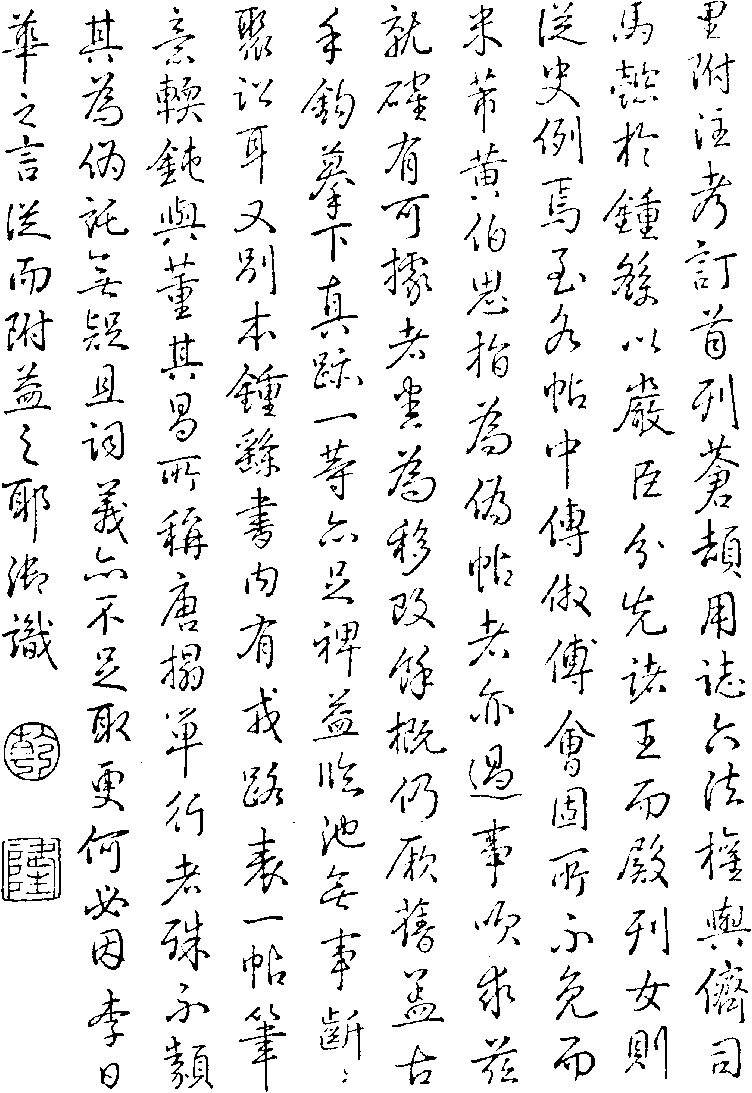 里附注考訂首列蒼頡用誌六法權輿儕司
馬懿於鍾繇以嚴臣分先諸王而殿列女則
從史例焉至各帖中傳倣傅會固所不免而
米芾黄伯思指為偽帖者亦過事吹求茲
就確有可據者為移改餘概仍厥舊蓋古
手鈎摹下真跡一等亦足裨益臨池無事齗々
聚訟耳又别本鍾繇書内有戎路表一帖筆
意輭鈍與董其昌所稱唐搨單行者殊不類
其為偽託無疑且詞義亦不足取更何必因李日
華之言從而附益之耶御識
乾
隆